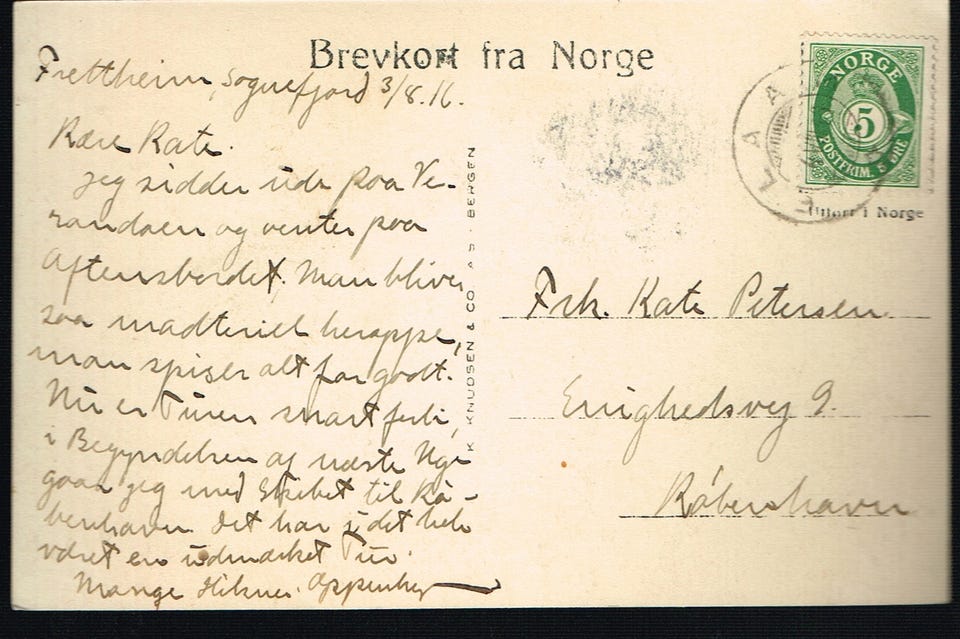 Brevkort fra Norge
Frettheim, Sognefjord 3/8.16.
Kære Kate.
Jeg sidder ude paa Ve-
randaen og venter paa
Aftensbordet. Man bliver
saa madteriel heroppe,
man spiser alt for godt.
Nu er Turen snart forbi,
i Begyndelsen af næste Uge
gaar jeg med Skibet til Kø-
benhavn. Det har i det hele
været en udmærket Tur.
Mange Hilsner.
K. KNUDSEN & CO. A.S. BERGEN
NORGE
5
POSTFRIM. 5 ØRE
Utført i Norge
Frk. Kate Petersen
Enighedsvej 9.
København